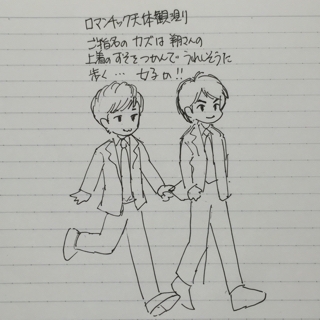 ロマンチック天体観測
ご指名の カズは 翔さんの
上着の すそを つかんで うれしそうに
歩く… 女子の!!